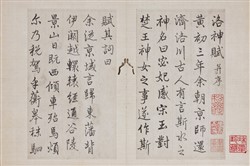 洛神賦 并序
黃初三年余朝京師還
濟洛川古人有言斯水之
神名曰宓妃感宋玉對
楚王神女之事遂作斯
賦其詞曰
余從京域言歸東藩背
伊闕越轘轅經通谷陵
景山日既西傾車殆馬煩
爾乃税駕乎蘅皋秣駟